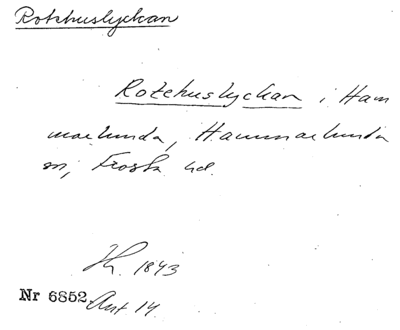 Rotehuslyckan
Rotehuslyckan i Ham
marlunda, Hammarlunda
sn, Frosta hd.
1843
Nr 6852 Ant 14.